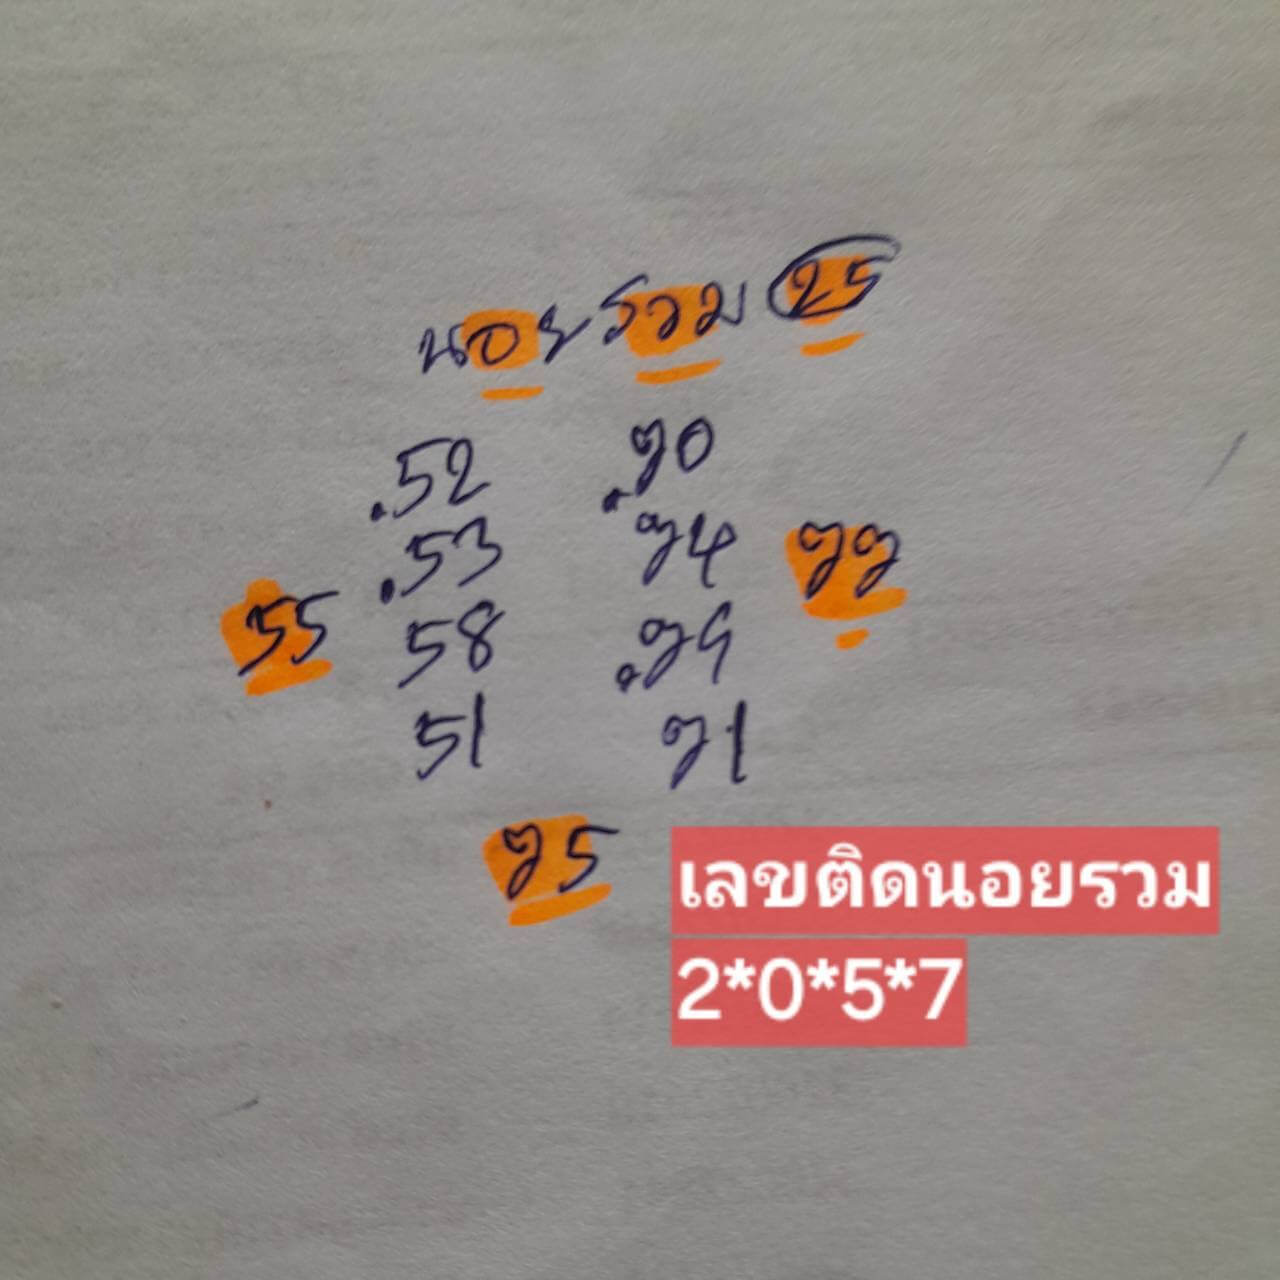 นอยรวม 25
.52 .70
.53 74 77
55 58 .79
51 71
75
เลขติดนอยรวม
2*0*5*7